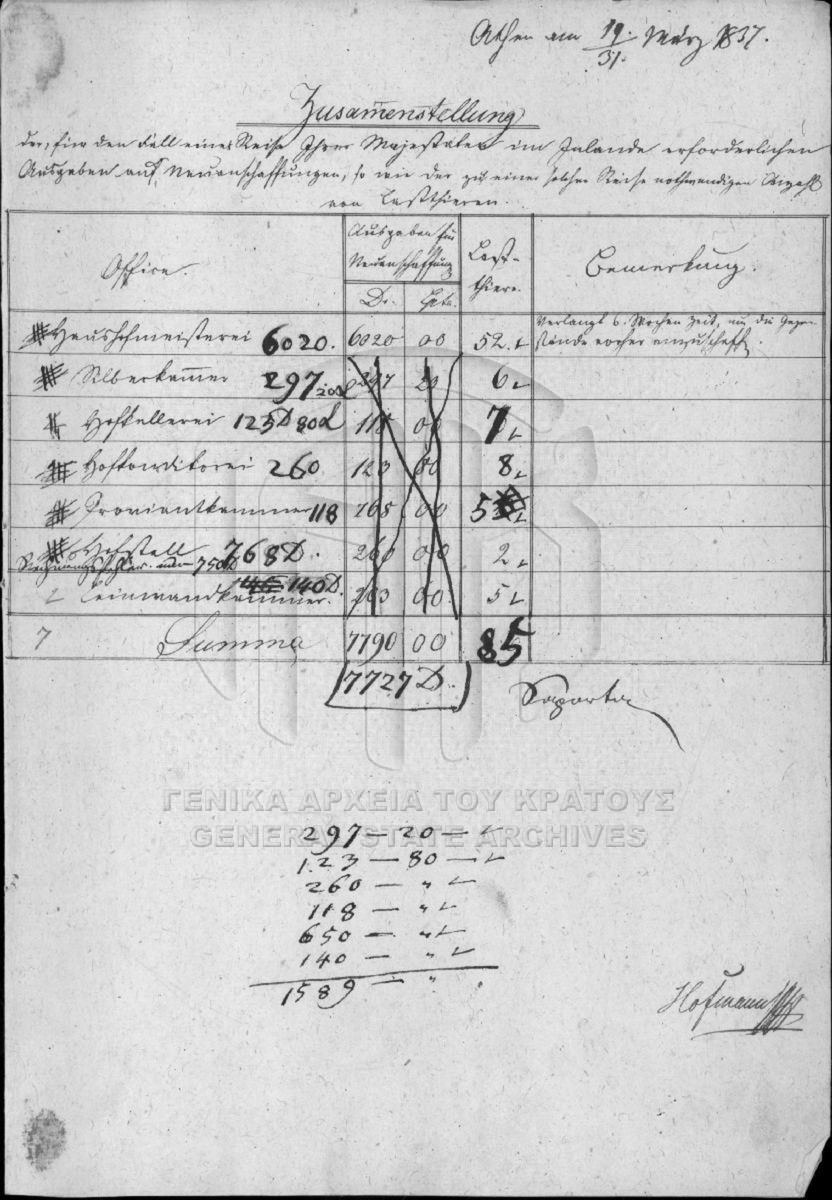 Athen am 19./31. März 1837.
Zusammenstellung
der, für den Fall einer Reise Ihrer Majestäten im Inlande erforderlichen
Ausgaben auf Neuanschaffungen, so wie der zu einer solchen Reise nothwendigen Anzahl
von Lastthieren.
Office. | Ausgaben für Neuanschaffung | Last-thiere. | Bemerkung.
Dr. | Lepta.
Haushofmeisterei 6020. | 6020 | 00 | 52. | Verlangt 6. Wochen Zeit, um die Gegen-
stände vorher anzuschaffen.
Silberkammer 297 20 | 297 | 20 | 6
Hofkellerei 123 D 80 L | 118 | 00 | 7
Hofkonditorei 260 | 123 | 80 | 8
Proviantkammer 118 | 768 | 00 | 5
Hofstall 768 D. | 260 | 00 | 2
750 D
140 D.
2 Leinwandkammer. | 203 | 00 | 5
7 Summa | 7790 | 00 | 85
7727 D.
Saporta
ΓΕΝΙΚΑ ΑΡΧΕΙΑ ΤΟΥ ΚΡΑΤΟΥΣ
GENERAL STATE ARCHIVES
297 — 20 —
123 — 80 —
260 — "
118 — "
650 — "
140 — "
1589 — "
Hofmann